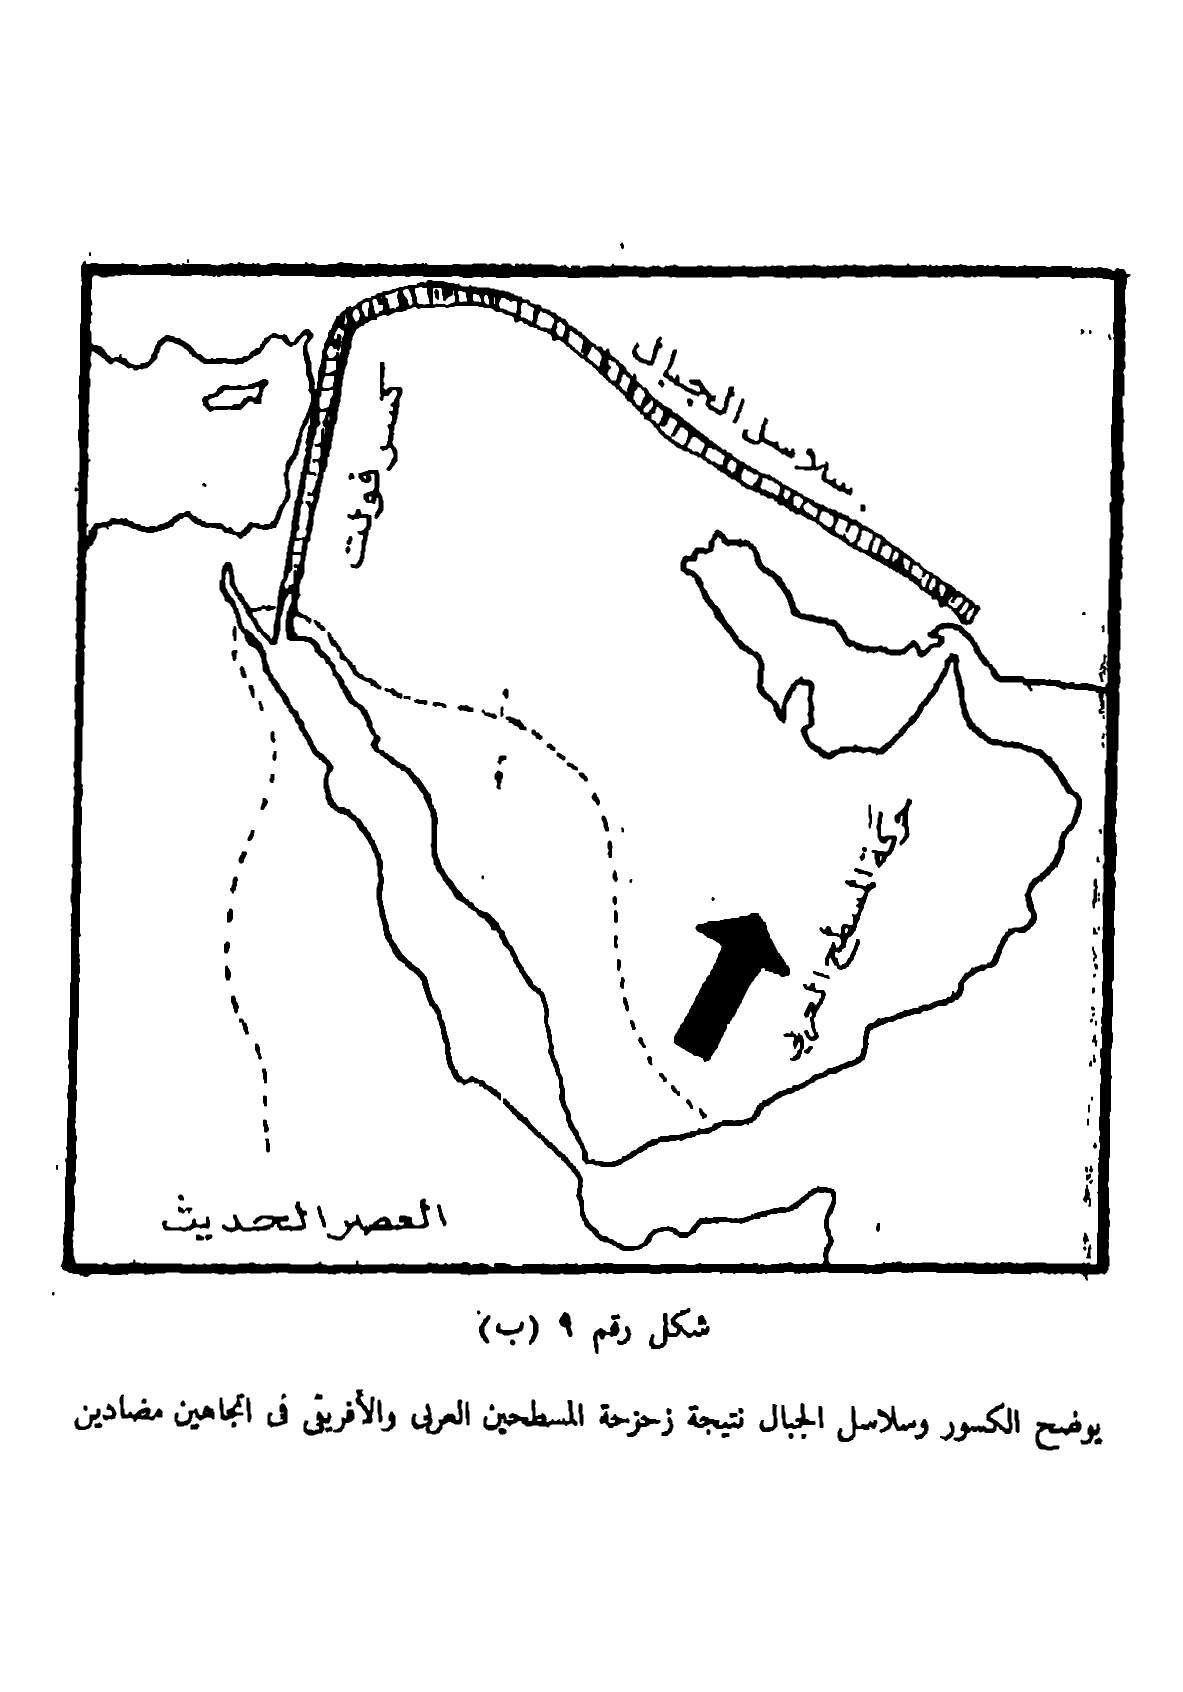 سلاسل الجبال
خط سر فولت
حركة المسطح العربي
العصر الحديث
شكل رقم ٩ (ب)
يوضح الكسور وسلاسل الجبال نتيجة زحزحة المسطحين العربى والأفريقى فى اتجاهين مضادين